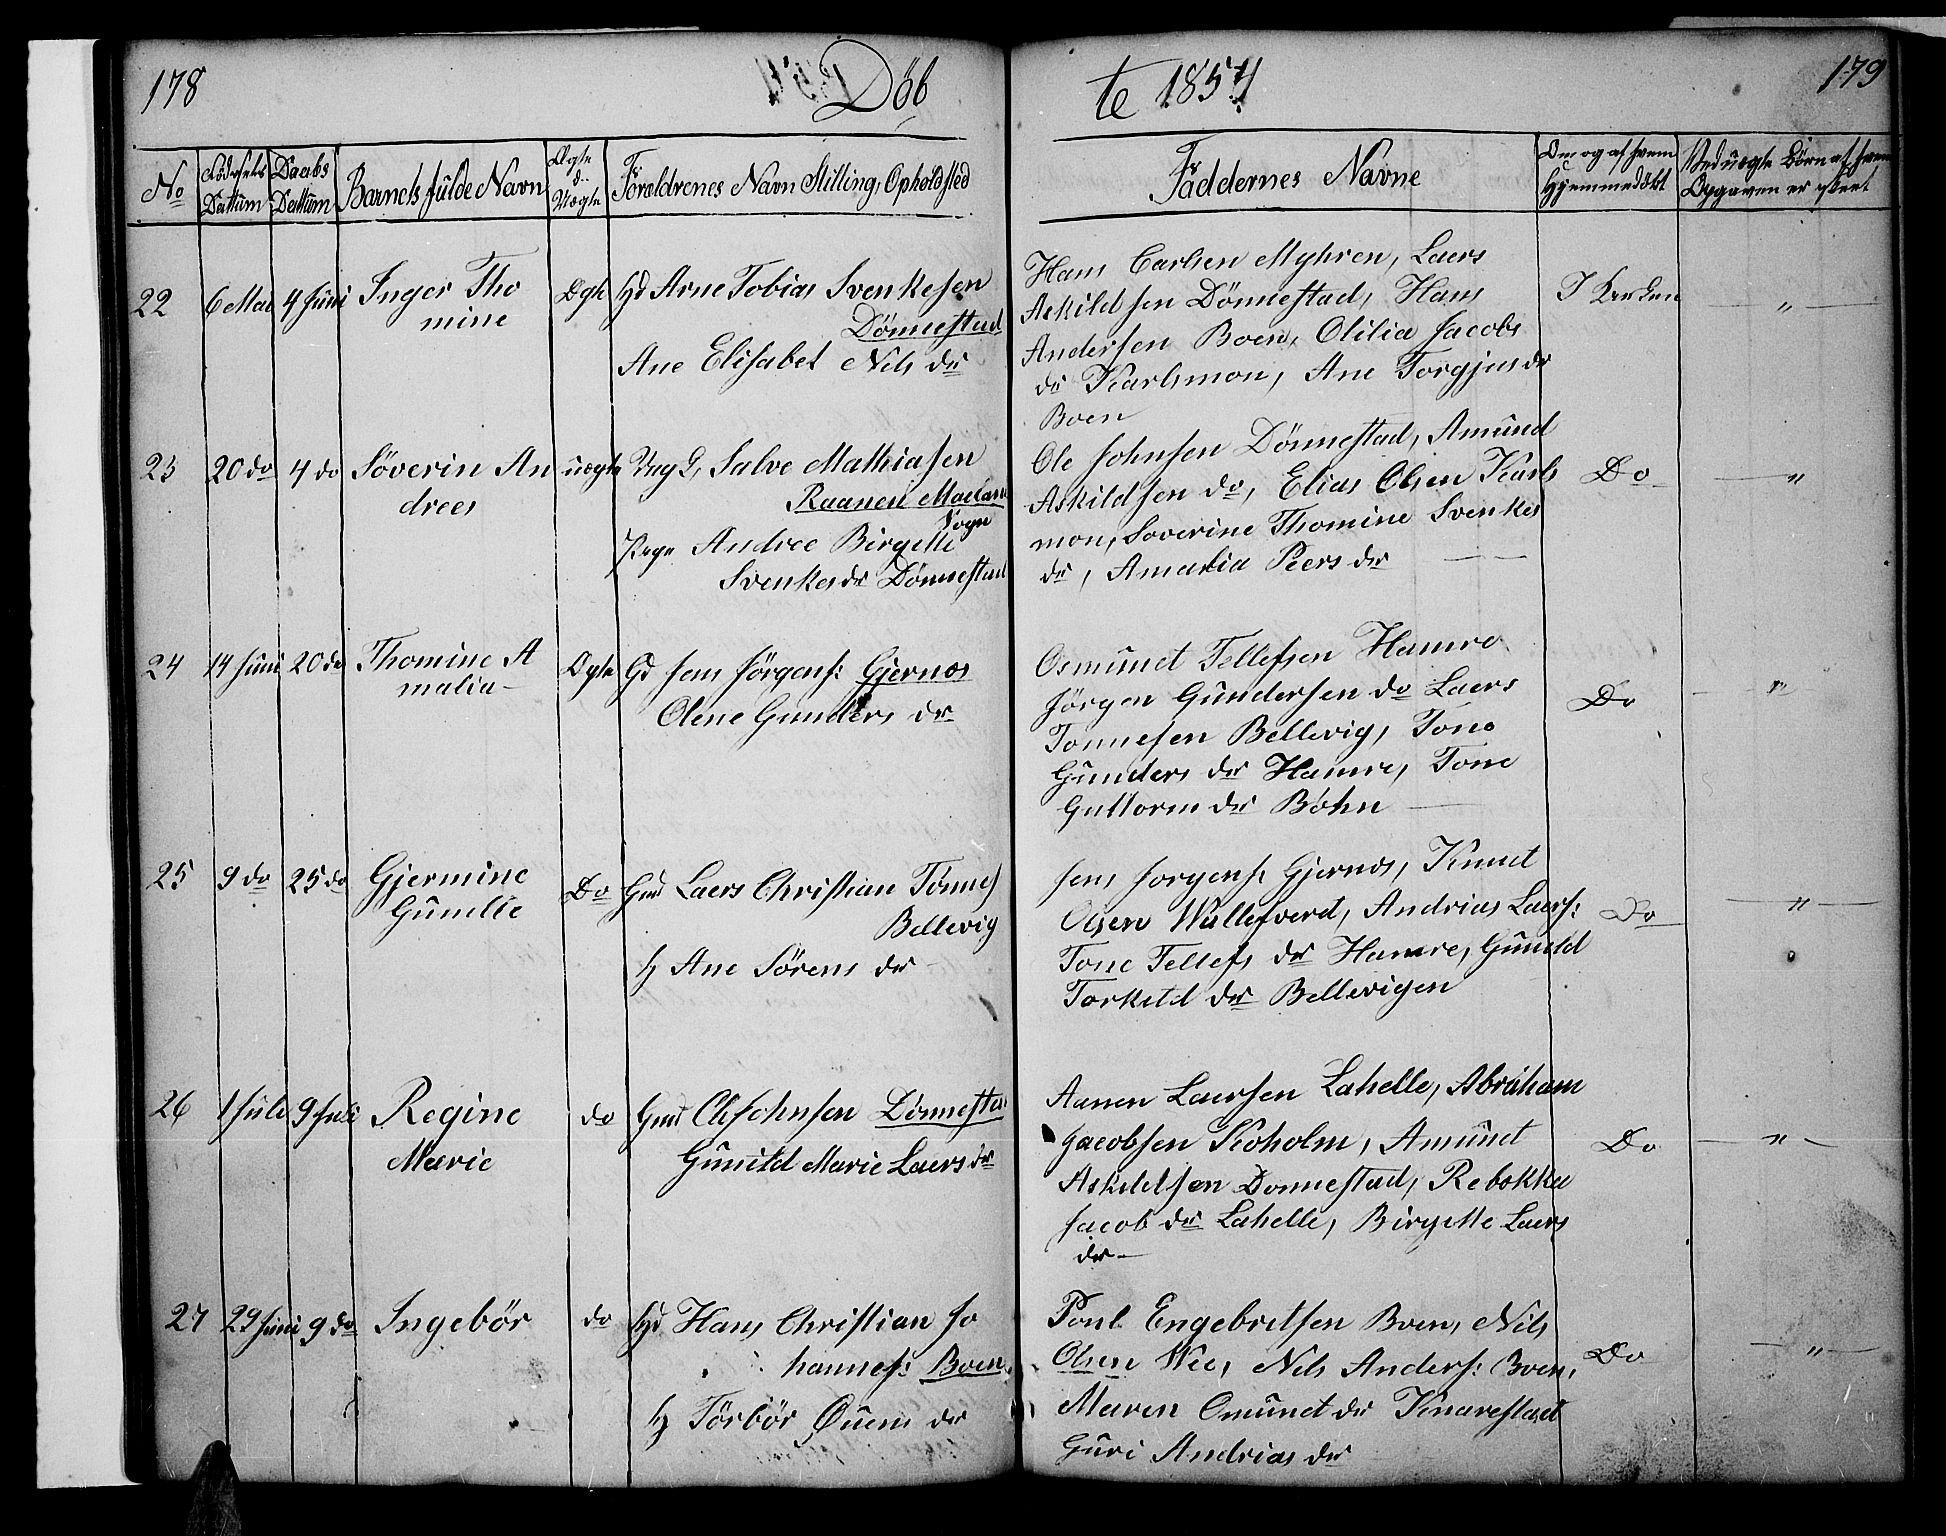 178
Döb
te 1854
179
No
Födsels Dattum
Daabs Dattum
Barnets fulde Navn
Ægte el. Uægte
Forældrenes Navn Stilling, Opholdsted
Faddernes Navne
Om og af hvem Hjemmedöbt
Ved uægte Börn af hvem Opgaven er skeet
22 6 Mai 4 Juni Inger Tho
mine
Ægte Hd Arne Tobias Svenkesen
Dönnestad
Ane Elisabet Nils dr
Hans Carlsen Myhren, Laers
Askildsen Dönnestad, Hans
Andersen Boen, Olilia Jacobs
dr Karlsmon, Ane Torgjus dr
Boen
I Kerken "
23 20 do 4 do Söverin An
drees
uægte Ung C, Salve Mathiasen
Raanen
Sogn
Pige Andree Birgette
Svenkesdr Dönnestad
Ole Johnsen Dönnestad, Amund
Askildsen do, Elias Olsen Karls
mon, Soverine Thomine Svenkes
dr, Amalia Peers dr
Do "
24 14 Juni 20 do Thomine A
malia
Ægte Gd Jens Jörgens: Gjernæs
Olene Gunders dr
Osmund Tellefsen Hamre
Jörgen Gundersen do Laers
Tonnesen Bellevig, Tone
Gunders dr Hamre, Tone
Guttorm dr Böhn
Do "
25 9 do 25 do Gjermine
Gunilde
Do Gmd Laers Christian Tönnes
Bellevig
H Ane Sörens dr
Jens Jorgens: Gjernæs, Knud
Olsen, Andrias Laers:
Tone Tellefs dr Hamre, Gunild
Torkeld dr Bellevigen
Do "
26 1 Juli 9 Juli Regine
Marie
do Gmd Ole Johnsen Dönnestad
Gunild Marie Laers dr
Aanen Laersen Lahelle, Abraham
Jacobsen Koholm, Amund
Askeldsen Donnestad, Rebekka
Jacob dr Lahelle, Birgette Laers
dr
Do "
27 29 Juni 9 do Ingebör
do Hd Hans Christian Jo
hannes: Boen
H Törbör dr
Poul Engebretsen Boen, Nils
Olsen Wee, Nils Anders: Boen,
Maren Omund dr Knarestad
Guri Andrias dr
Do "